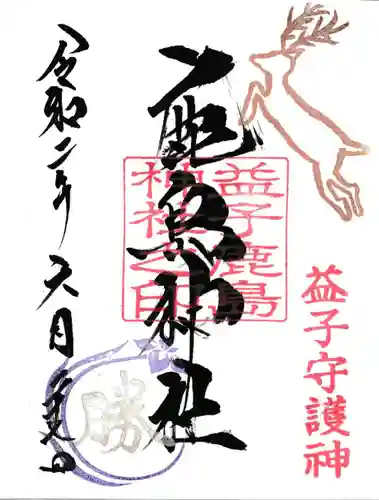 益子守護神
鹿島神社
益子鹿島
神社之印
令和二年 六月吉日
勝